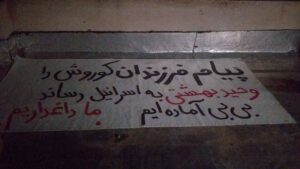 پیام فرزندان کوروش را
وحید بهشتی به اسرائیل رساند
بی بی آماده ایم ما داغداریم